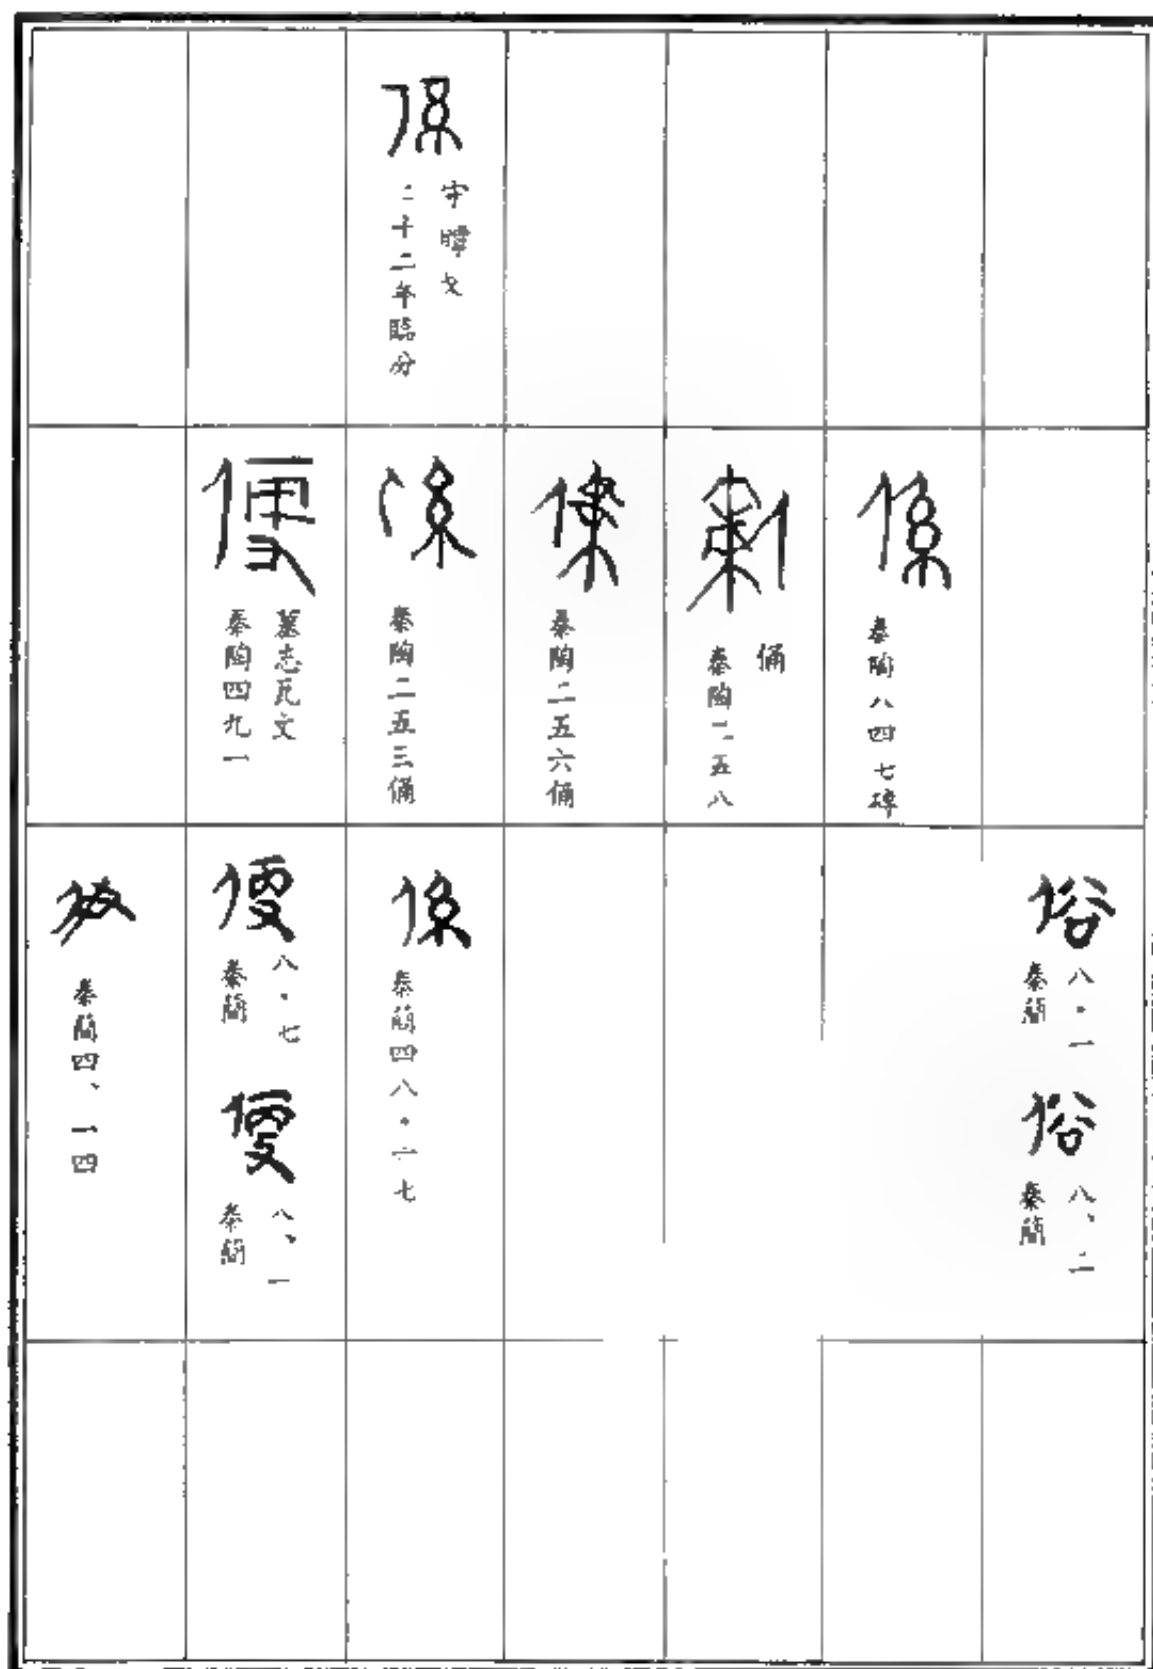 係
守瞫戈
二十二年臨汾
係
秦陶八四七磚
俑
秦陶二五八
係
秦陶二五六俑
係
秦陶二五三俑
便
墓志瓦文
秦陶四九一
俗
八·一
秦簡
俗
八、二
秦簡
係
秦簡四八·一七
便
八·七
秦簡
便
八、一
秦簡
秦簡四、一四